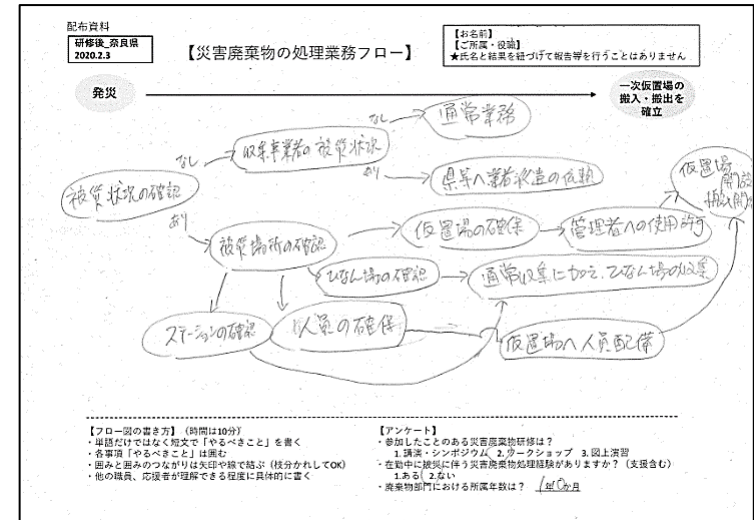 配布資料
研修後_奈良県
2020.2.3
【災害廃棄物の処理業務フロー】
【お名前】
【ご所属・役職】
★氏名と結果を紐づけて報告等を行うことはありません
発災
一次仮置場の
搬入・搬出を
確立
なし
通常業務
なし
収集事業者の被災状況
あり
県等へ業者派遣の依頼
被災状況の確認
仮置場
開設
搬出開始
あり
被災場所の確認
仮置場の確保
管理者への使用許可
ひなん場の確認
通常収集に加え、ひなん場の収集
ステーションの確認
人員の確保
仮置場へ人員配備
【フロー図の書き方】(時間は10分)
・単語だけではなく短文で「やるべきこと」を書く
・各事項「やるべきこと」は囲む
・囲みと囲みのつながりは矢印や線で結ぶ(枝分かれしてOK)
・他の職員、応援者が理解できる程度に具体的に書く
【アンケート】
・参加したことのある災害廃棄物研修は?
1. 講演・シンポジウム 2. ワークショップ 3. 図上演習
・在勤中に被災に伴う災害廃棄物処理経験がありますか?(支援含む)
1.ある 2.ない
・廃棄物部門における所属年数は? 1年0か月